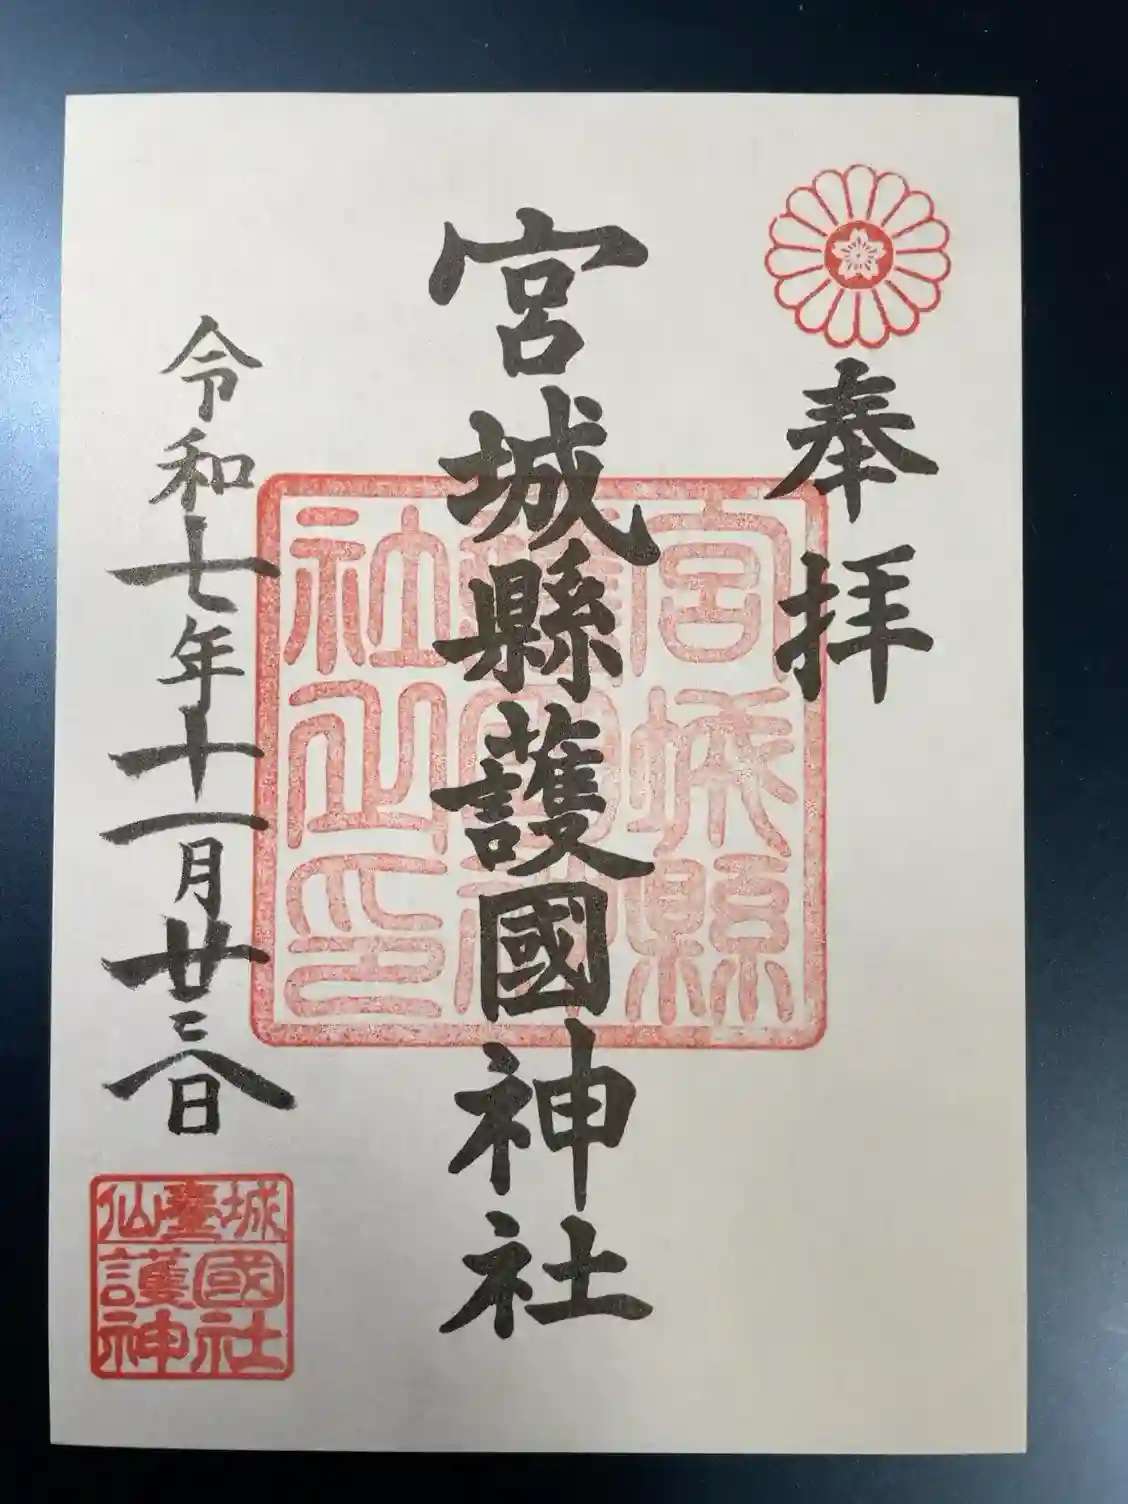 奉拝
宮城縣護國神社
宮城縣
護國神
社之印
令和七年十一月廿日
仙臺城
護國
神社